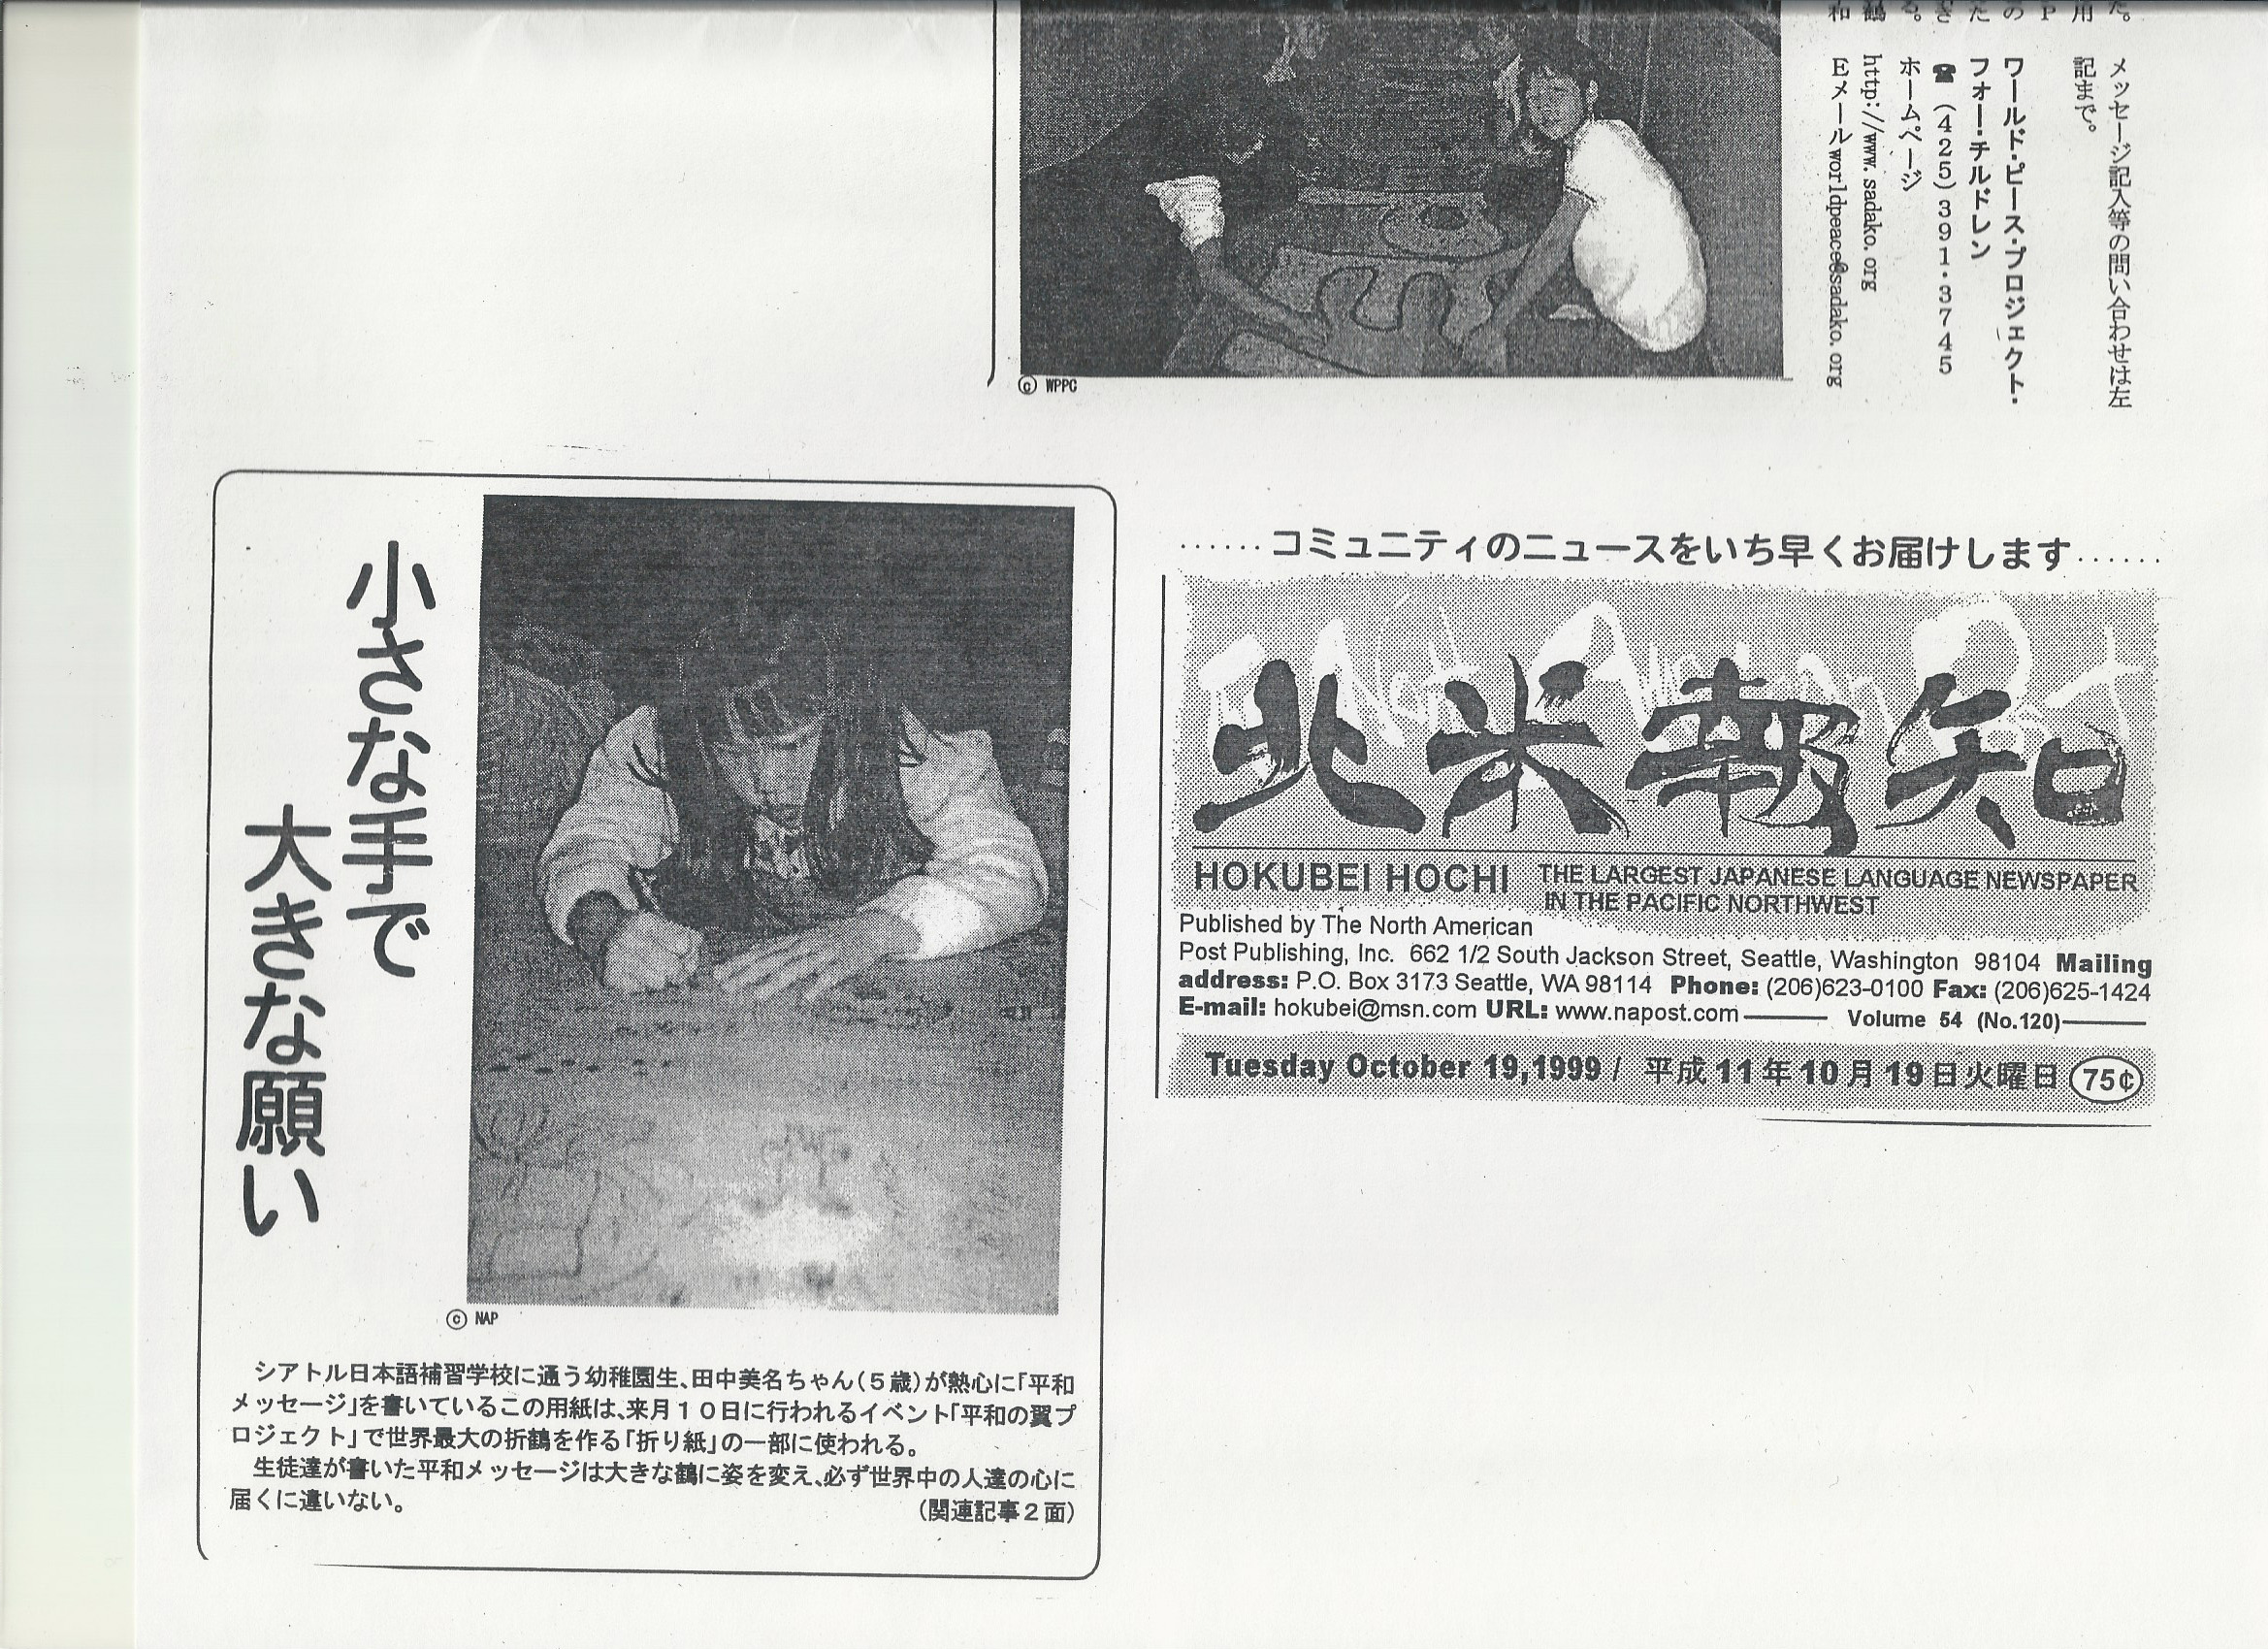 た。
用
P
の
た
ぎ
る。
鶴
和
メッセージ記入等の問い合わせは左
記まで。
ワールド・ピース・プロジェクト・
フォー・チルドレン
☎ (425)391・3745
ホームページ
http://www.sadako.org
Eメールworldpeace@sadako.org
© WPPC
小さな手で
大きな願い
© NAP
シアトル日本語補習学校に通う幼稚園生、田中美名ちゃん(5歳)が熱心に「平和
メッセージ」を書いているこの用紙は、来月10日に行われるイベント「平和の翼プ
ロジェクト」で世界最大の折鶴を作る「折り紙」の一部に使われる。
生徒達が書いた平和メッセージは大きな鶴に姿を変え、必ず世界中の人達の心に
届くに違いない。
(関連記事2面)
……コミュニティのニュースをいち早くお届けします……
北米報知
HOKUBEI HOCHI THE LARGEST JAPANESE LANGUAGE NEWSPAPER
IN THE PACIFIC NORTHWEST
Published by The North American
Post Publishing, Inc. 662 1/2 South Jackson Street, Seattle, Washington 98104 Mailing
address: P.O. Box 3173 Seattle, WA 98114 Phone: (206)623-0100 Fax: (206)625-1424
E-mail: hokubei@msn.com URL: www.napost.com Volume 54 (No.120)
Tuesday October 19,1999 / 平成11年10月19日火曜日 75¢